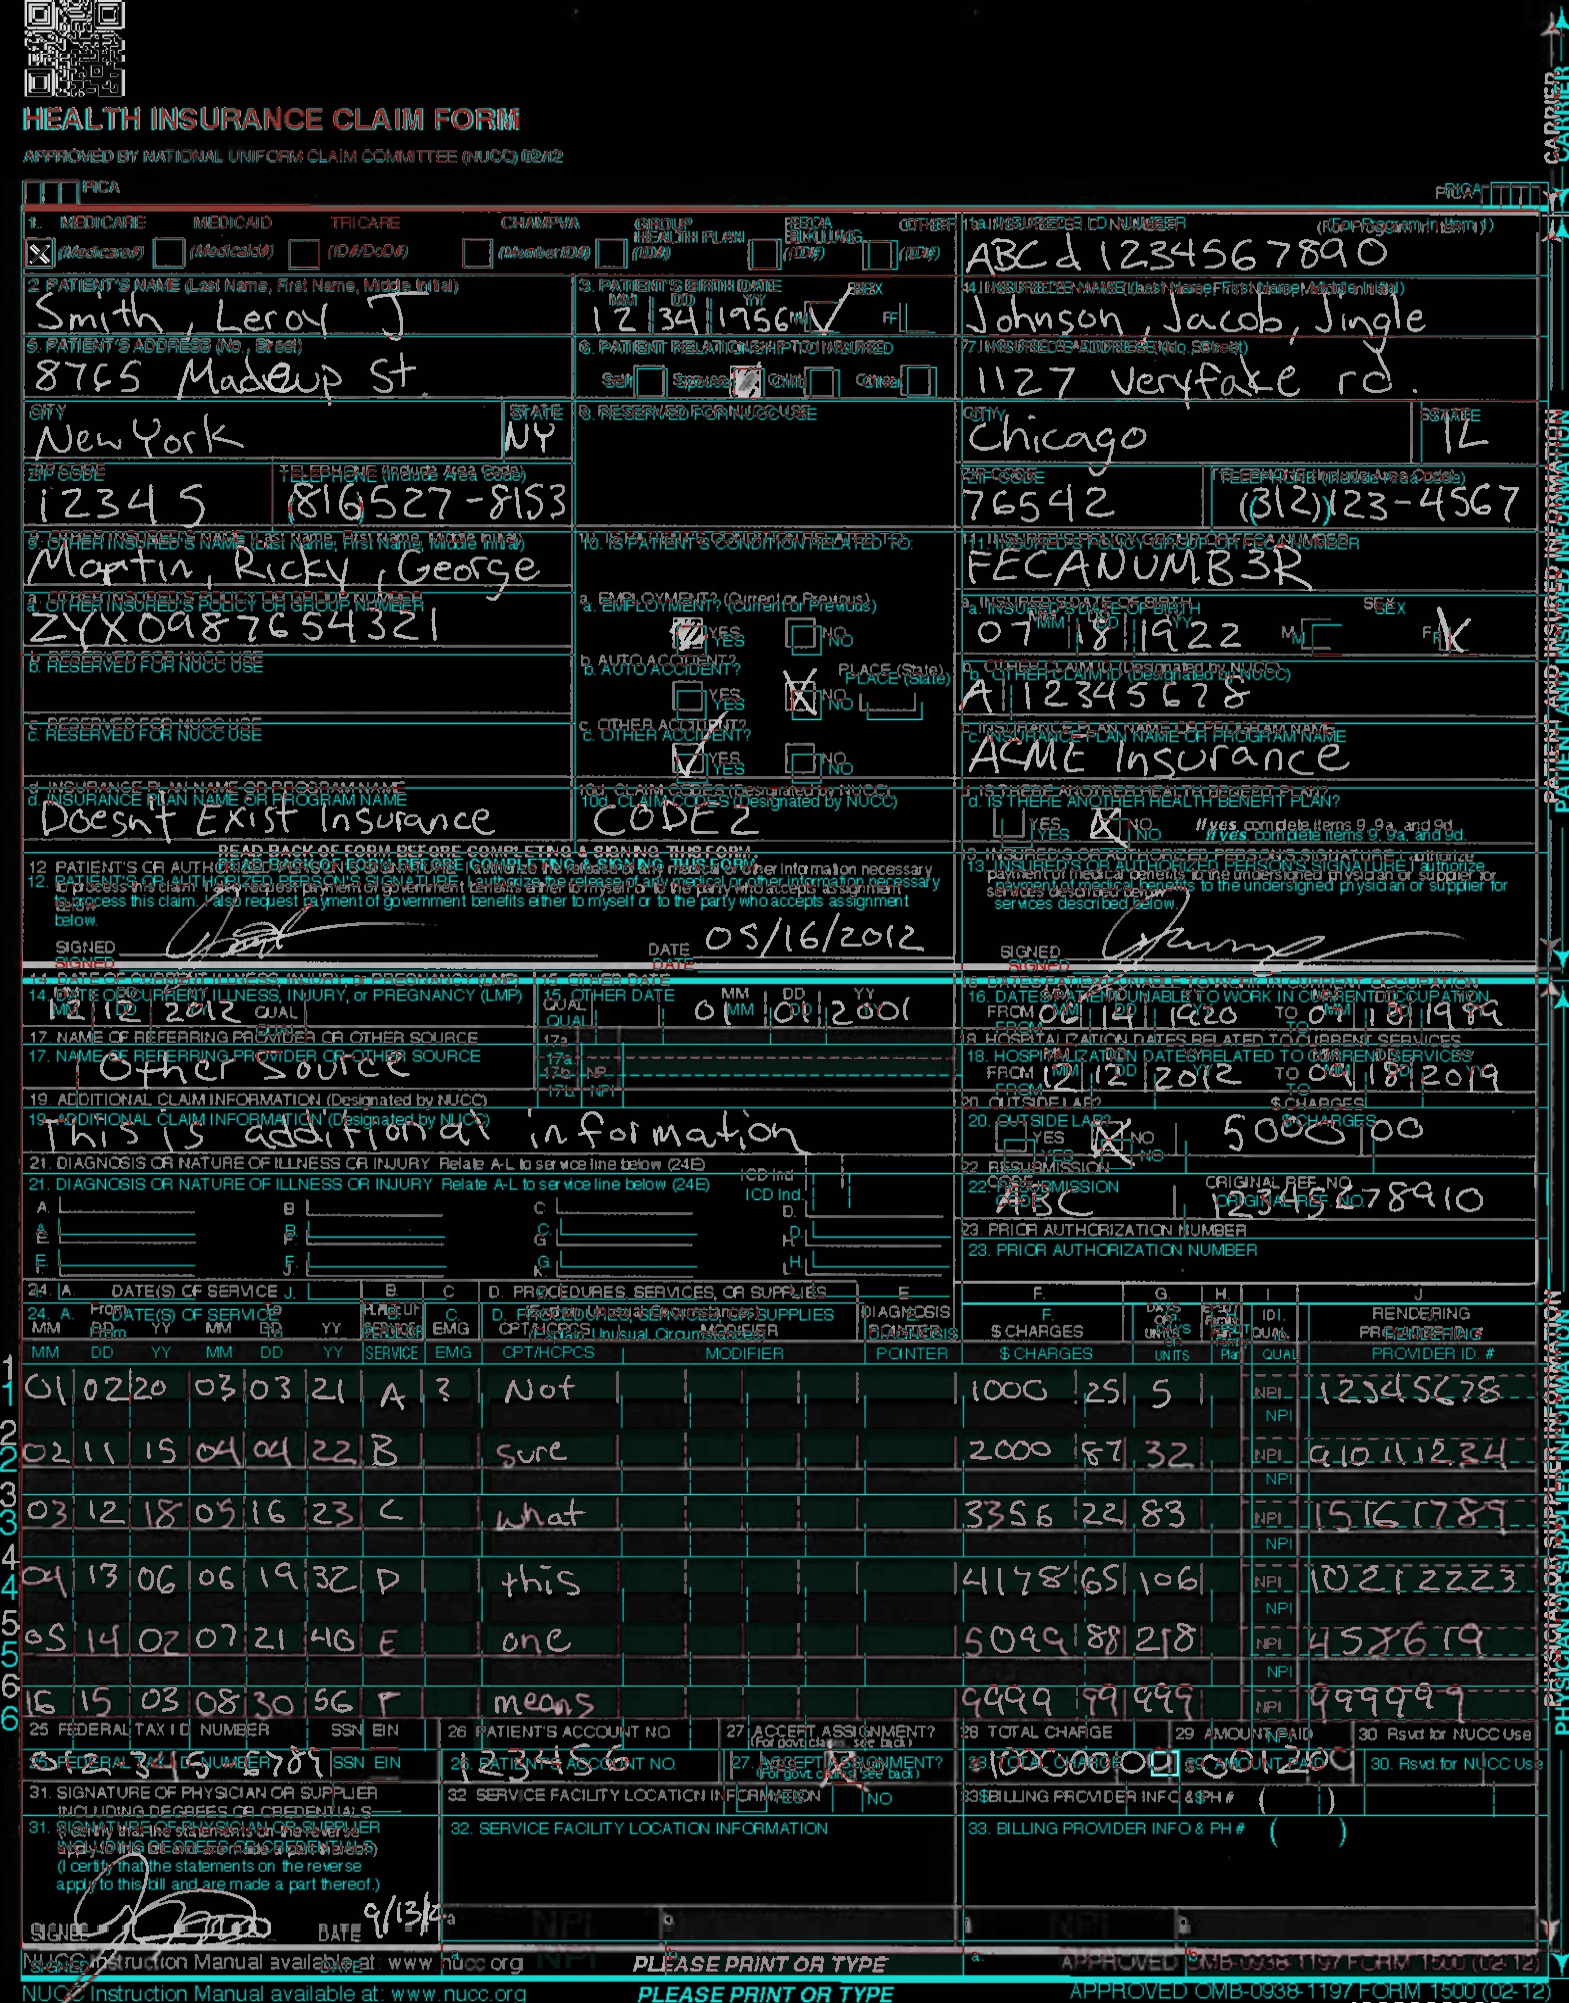 HEALTH INSURANCE CLAIM FORM
APPROVED BY NATIONAL UNIFORM CLAIM COMMITTEE (NUCC) 02/12
PICA
PICA
CARRIER
1. MEDICARE MEDICAID TRICARE CHAMPVA GROUP HEALTH PLAN FECA BLK LUNG OTHER
(Medicare#) (Medicaid#) (ID#/DoD#) (Member ID#) (ID#) (ID#) (ID#)
1a. INSURED'S I.D. NUMBER (For Program in Item 1)
ABCd 1234567890
2. PATIENT'S NAME (Last Name, First Name, Middle Initial)
Smith, Leroy J
3. PATIENT'S BIRTH DATE SEX
MM DD YY
12 34 1956 M F
4. INSURED'S NAME (Last Name, First Name, Middle Initial)
Johnson, Jacob, Jingle
5. PATIENT'S ADDRESS (No., Street)
8765 Madeup St.
6. PATIENT RELATIONSHIP TO INSURED
Self Spouse Child Other
7. INSURED'S ADDRESS (No., Street)
1127 Veryfake rd.
CITY STATE
New York NY
8. RESERVED FOR NUCC USE
CITY STATE
Chicago IL
ZIP CODE TELEPHONE (Include Area Code)
12345 (816) 527-8153
ZIP CODE TELEPHONE (Include Area Code)
76542 (312) 123-4567
9. OTHER INSURED'S NAME (Last Name, First Name, Middle Initial)
Martin, Ricky, George
10. IS PATIENT'S CONDITION RELATED TO:
11. INSURED'S POLICY GROUP OR FECA NUMBER
FECANUMB3R
a. OTHER INSURED'S POLICY OR GROUP NUMBER
ZYX0987654321
a. EMPLOYMENT? (Current or Previous)
YES NO
a. INSURED'S DATE OF BIRTH SEX
MM DD YY
07 18 1922 M F
b. RESERVED FOR NUCC USE
b. AUTO ACCIDENT? PLACE (State)
YES NO
b. OTHER CLAIM ID (Designated by NUCC)
A 12345678
c. RESERVED FOR NUCC USE
c. OTHER ACCIDENT?
YES NO
c. INSURANCE PLAN NAME OR PROGRAM NAME
ACME Insurance
d. INSURANCE PLAN NAME OR PROGRAM NAME
Doesn't Exist Insurance
10d. CLAIM CODES (Designated by NUCC)
CODE2
d. IS THERE ANOTHER HEALTH BENEFIT PLAN?
YES NO If yes, complete items 9, 9a, and 9d.
READ BACK OF FORM BEFORE COMPLETING & SIGNING THIS FORM.
12. PATIENT'S OR AUTHORIZED PERSON'S SIGNATURE I authorize the release of any medical or other information necessary
to process this claim. I also request payment of government benefits either to myself or to the party who accepts assignment
below.
SIGNED DATE 05/16/2012
13. INSURED'S OR AUTHORIZED PERSON'S SIGNATURE I authorize
payment of medical benefits to the undersigned physician or supplier for
services described below.
SIGNED
PATIENT AND INSURED INFORMATION
14. DATE OF CURRENT ILLNESS, INJURY, or PREGNANCY (LMP)
MM DD YY
12 12 2012 QUAL.
15. OTHER DATE
QUAL. MM DD YY
01 01 2001
16. DATES PATIENT UNABLE TO WORK IN CURRENT OCCUPATION
FROM 06 14 1920 TO 1989
17. NAME OF REFERRING PROVIDER OR OTHER SOURCE
Other Source
17a.
17b. NPI
18. HOSPITALIZATION DATES RELATED TO CURRENT SERVICES
FROM 12 12 2012 TO 09 18 2019
19. ADDITIONAL CLAIM INFORMATION (Designated by NUCC)
This is additional information
20. OUTSIDE LAB? $ CHARGES
YES NO 5000 00
21. DIAGNOSIS OR NATURE OF ILLNESS OR INJURY Relate A-L to service line below (24E)
ICD Ind.
A. B. C. D.
E. F. G. H.
22. RESUBMISSION CODE ORIGINAL REF. NO.
ABC 12345678910
23. PRIOR AUTHORIZATION NUMBER
24. A. DATE(S) OF SERVICE B. C. D. PROCEDURES, SERVICES, OR SUPPLIES E. F. G. H. I. J.
From To PLACE OF (Explain Unusual Circumstances) DIAGNOSIS DAYS OR ID. RENDERING
MM DD YY MM DD YY SERVICE EMG CPT/HCPCS MODIFIER POINTER $ CHARGES UNITS QUAL. PROVIDER ID. #
1 01 02 20 03 03 21 A ? Not 1000 25 5 NPI 12345678
2 02 11 15 04 04 22 B sure 2000 87 32 NPI 910111234
3 03 12 18 05 16 23 C what 3356 22 83 NPI 15161789
4 04 13 06 06 19 32 D this 4178 65 106 NPI 102122223
5 05 14 02 07 21 40 E one 5099 88 218 NPI 4598619
6 16 15 03 08 30 56 F means 9999 99 999 NPI 999999
25. FEDERAL TAX I.D. NUMBER SSN EIN
26. PATIENT'S ACCOUNT NO.
123456
27. ACCEPT ASSIGNMENT?
(For govt. claims, see back)
YES NO
28. TOTAL CHARGE
29. AMOUNT PAID
30. Rsvd. for NUCC Use
31. SIGNATURE OF PHYSICIAN OR SUPPLIER
INCLUDING DEGREES OR CREDENTIALS
(I certify that the statements on the reverse
apply to this bill and are made a part thereof.)
SIGNED DATE 9/13/2
32. SERVICE FACILITY LOCATION INFORMATION
a. NPI b.
33. BILLING PROVIDER INFO & PH # ( )
a. b.
PHYSICIAN OR SUPPLIER INFORMATION
NUCC Instruction Manual available at: www.nucc.org
PLEASE PRINT OR TYPE
APPROVED OMB-0938-1197 FORM 1500 (02-12)